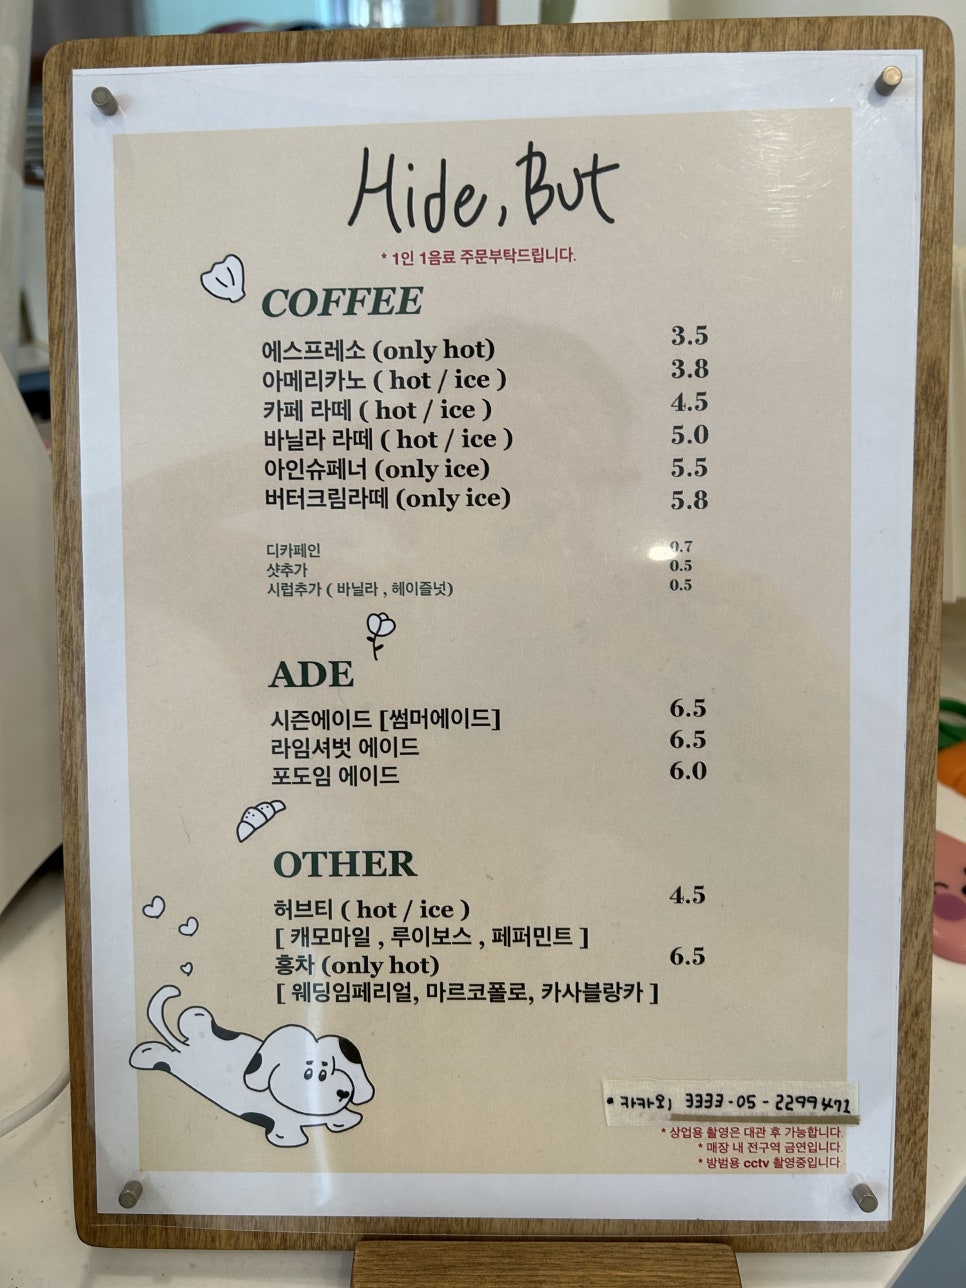 Hide, But
* 1인 1음료 주문부탁드립니다.
COFFEE
에스프레소 (only hot) 3.5
아메리카노 ( hot / ice ) 3.8
카페 라떼 ( hot / ice ) 4.5
바닐라 라떼 ( hot / ice ) 5.0
아인슈페너 (only ice) 5.5
버터크림라떼 (only ice) 5.8
디카페인 0.7
샷추가 0.5
시럽추가 ( 바닐라 , 헤이즐넛) 0.5
ADE
시즌에이드 [썸머에이드] 6.5
라임셔벗 에이드 6.5
포도임 에이드 6.0
OTHER
허브티 ( hot / ice ) 4.5
[ 캐모마일 , 루이보스 , 페퍼민트 ]
홍차 (only hot) 6.5
[ 웨딩임페리얼, 마르코폴로, 카사블랑카 ]
• 카카오) 3333-05-2299471
* 상업용 촬영은 대관 후 가능합니다.
* 매장 내 전구역 금연입니다.
* 방범용 cctv 촬영중입니다.